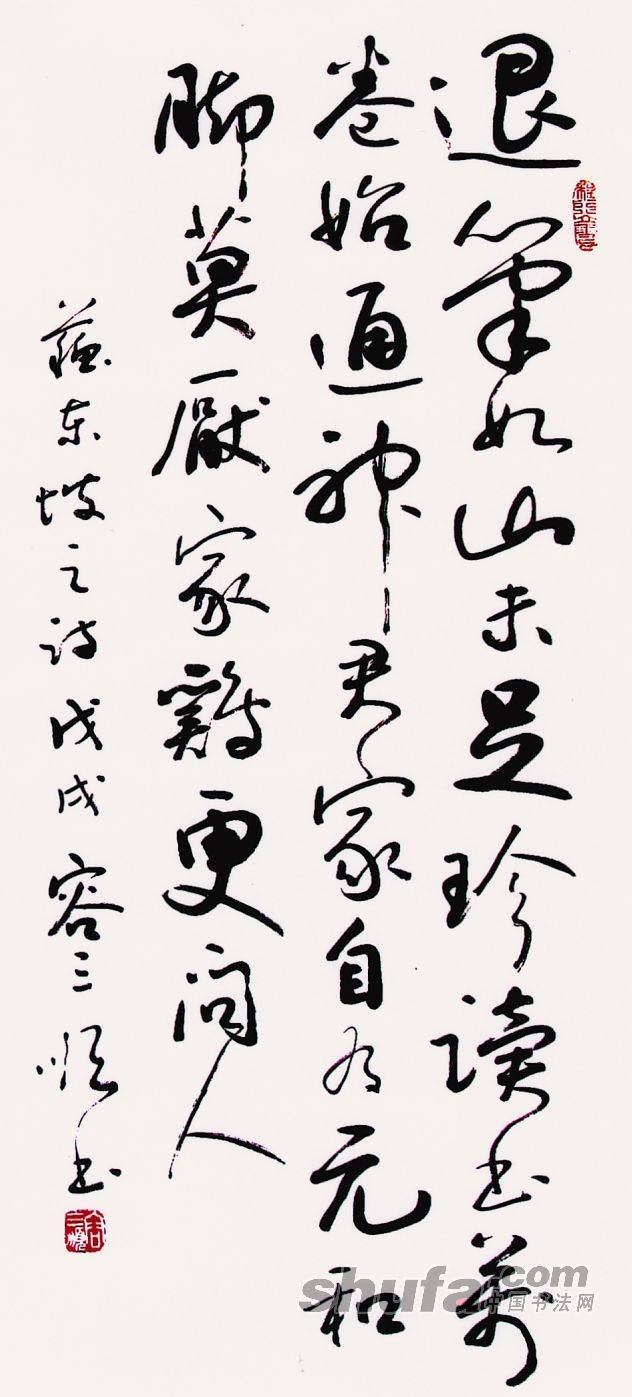 退筆如山未足珍讀书萬
卷始通神君家自有元和
脚莫厭家雞更问人
蘇东坡之诗戊戌容三顺书
shufa.com
中国书法网